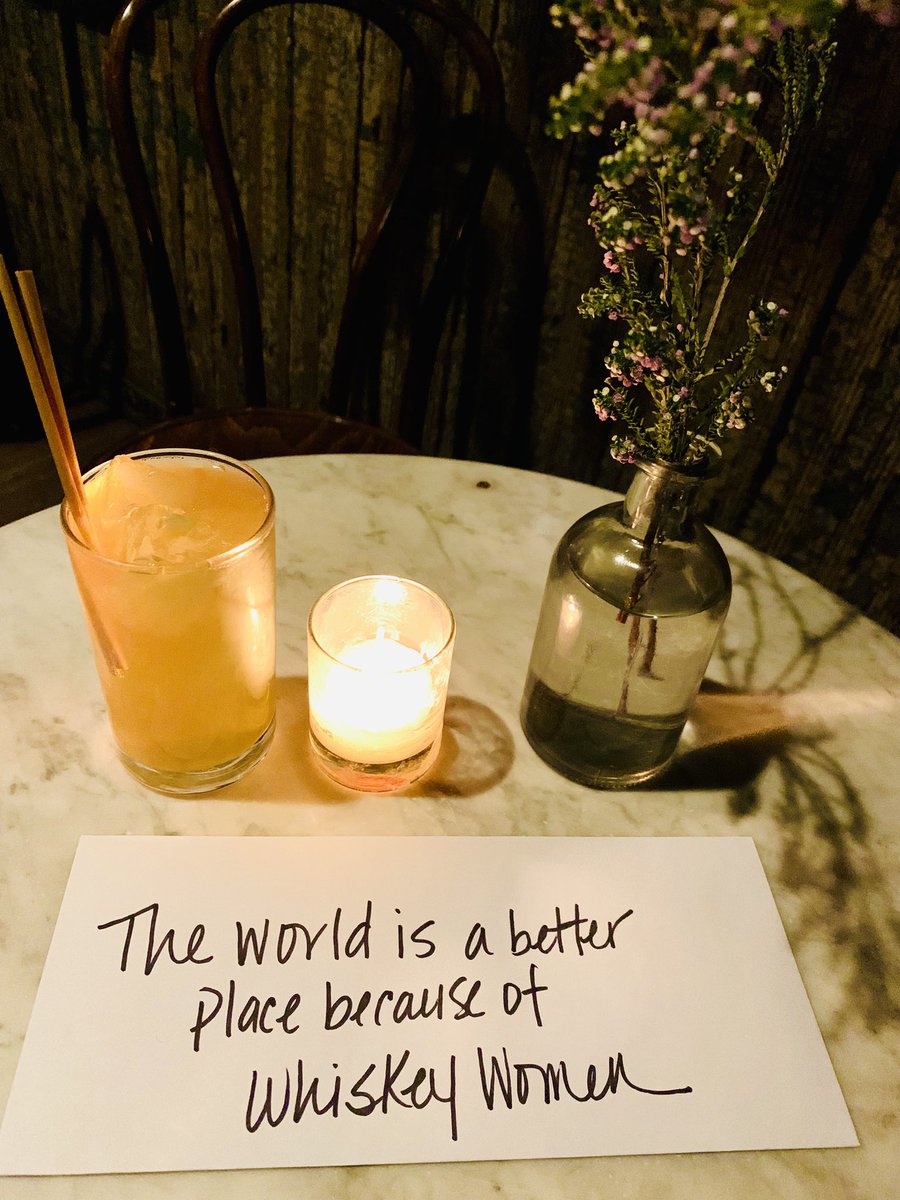 The world is a better
place because of
Whiskey Women